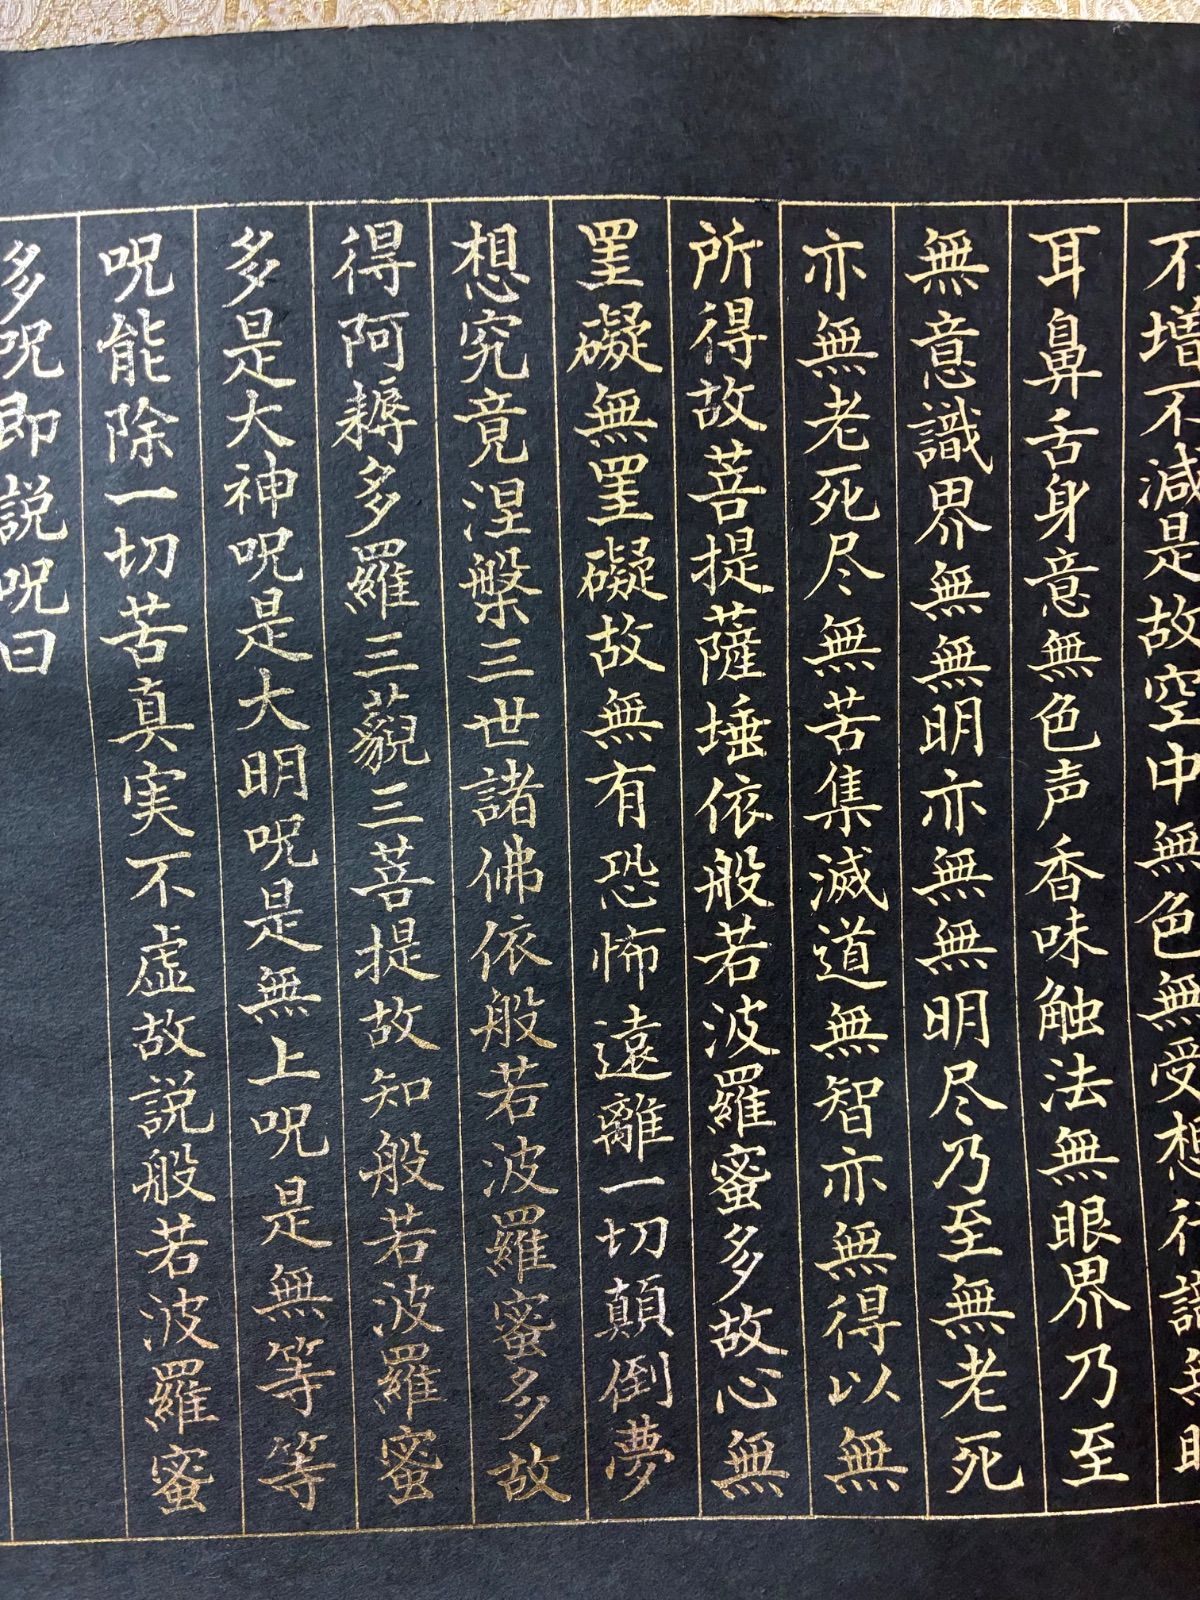 不増不減是故空中無色無受想行識無眼
耳鼻舌身意無色声香味触法無眼界乃至
無意識界無無明亦無無明尽乃至無老死
亦無老死尽無苦集滅道無智亦無得以無
所得故菩提薩埵依般若波羅蜜多故心無
罣礙無罣礙故無有恐怖遠離一切顛倒夢
想究竟涅槃三世諸佛依般若波羅蜜多故
得阿耨多羅三藐三菩提故知般若波羅蜜
多是大神呪是大明呪是無上呪是無等等
呪能除一切苦真実不虚故説般若波羅蜜
多呪即説呪曰